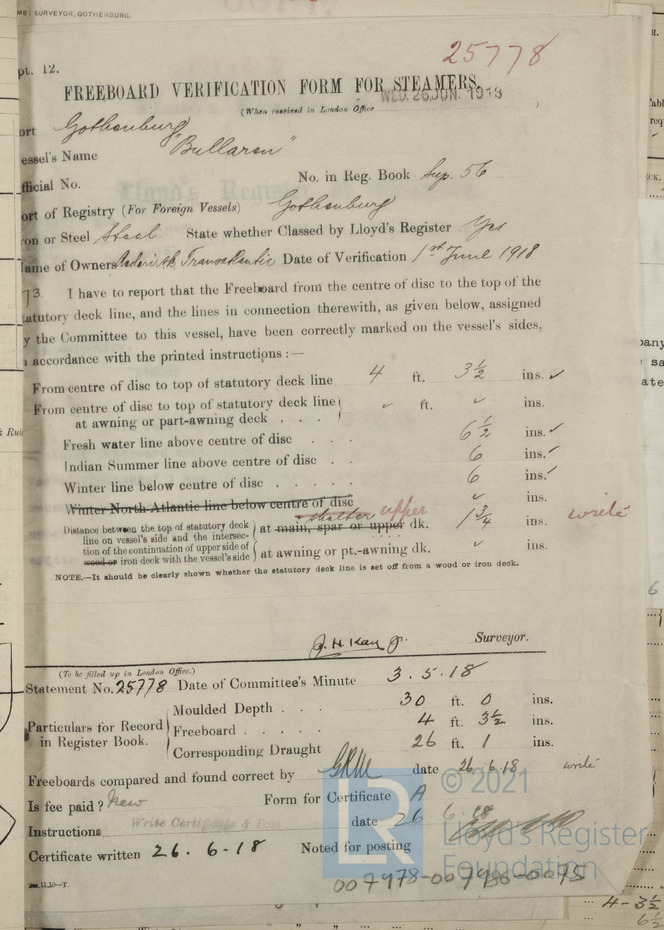 MS: SURVEYOR, GOTHENBURG.
25778
pt. 12.
FREEBOARD VERIFICATION FORM FOR STEAMERS.
WED. 26 JUN. 1918
(When received in London Office
ort Gothenburg
essel's Name "Bullaren"
fficial No. No. in Reg. Book Sup. 56
ort of Registry (For Foreign Vessels) Gothenburg
on or Steel Steel State whether Classed by Lloyd's Register Yes
ame of Owners Transatlantic Date of Verification 1st June 1918
73. I have to report that the Freeboard from the centre of disc to the top of the
tatutory deck line, and the lines in connection therewith, as given below, assigned
y the Committee to this vessel, have been correctly marked on the vessel's sides,
n accordance with the printed instructions :—
From centre of disc to top of statutory deck line 4 ft. 3½ ins. ✓
From centre of disc to top of statutory deck line
at awning or part-awning deck . . . ✓ ft. ✓ ins.
Fresh water line above centre of disc . . . 6½ ins. ✓
Indian Summer line above centre of disc . . 6 ins. ✓
Winter line below centre of disc . . . . . 6 ins. ✓
Winter North Atlantic line below centre of disc ✓ ins.
shelter upper
Distance between the top of statutory deck
line on vessel's side and the intersec-
tion of the continuation of upper side of
wood or iron deck with the vessel's side
at main, spar or upper dk. 1¾ ins. write
at awning or pt.-awning dk. ✓ ins.
NOTE.—It should be clearly shown whether the statutory deck line is set off from a wood or iron deck.
J. H. Kay Jr. Surveyor.
(To be filled up in London Office.)
Statement No. 25778 Date of Committee's Minute 3.5.18
Particulars for Record
in Register Book.
Moulded Depth . . . 30 ft. 0 ins.
Freeboard . . . . . 4 ft. 3½ ins.
Corresponding Draught 26 ft. 1 ins.
Freeboards compared and found correct by date 26.6.18 write
Is fee paid? New Form for Certificate A
date 26.6.18
Instructions Write Certificate & Post
Certificate written 26.6.18 Noted for posting
007978-007986-0075
© 2021
LR
Lloyd's Register
Foundation
4 - 3½
6½